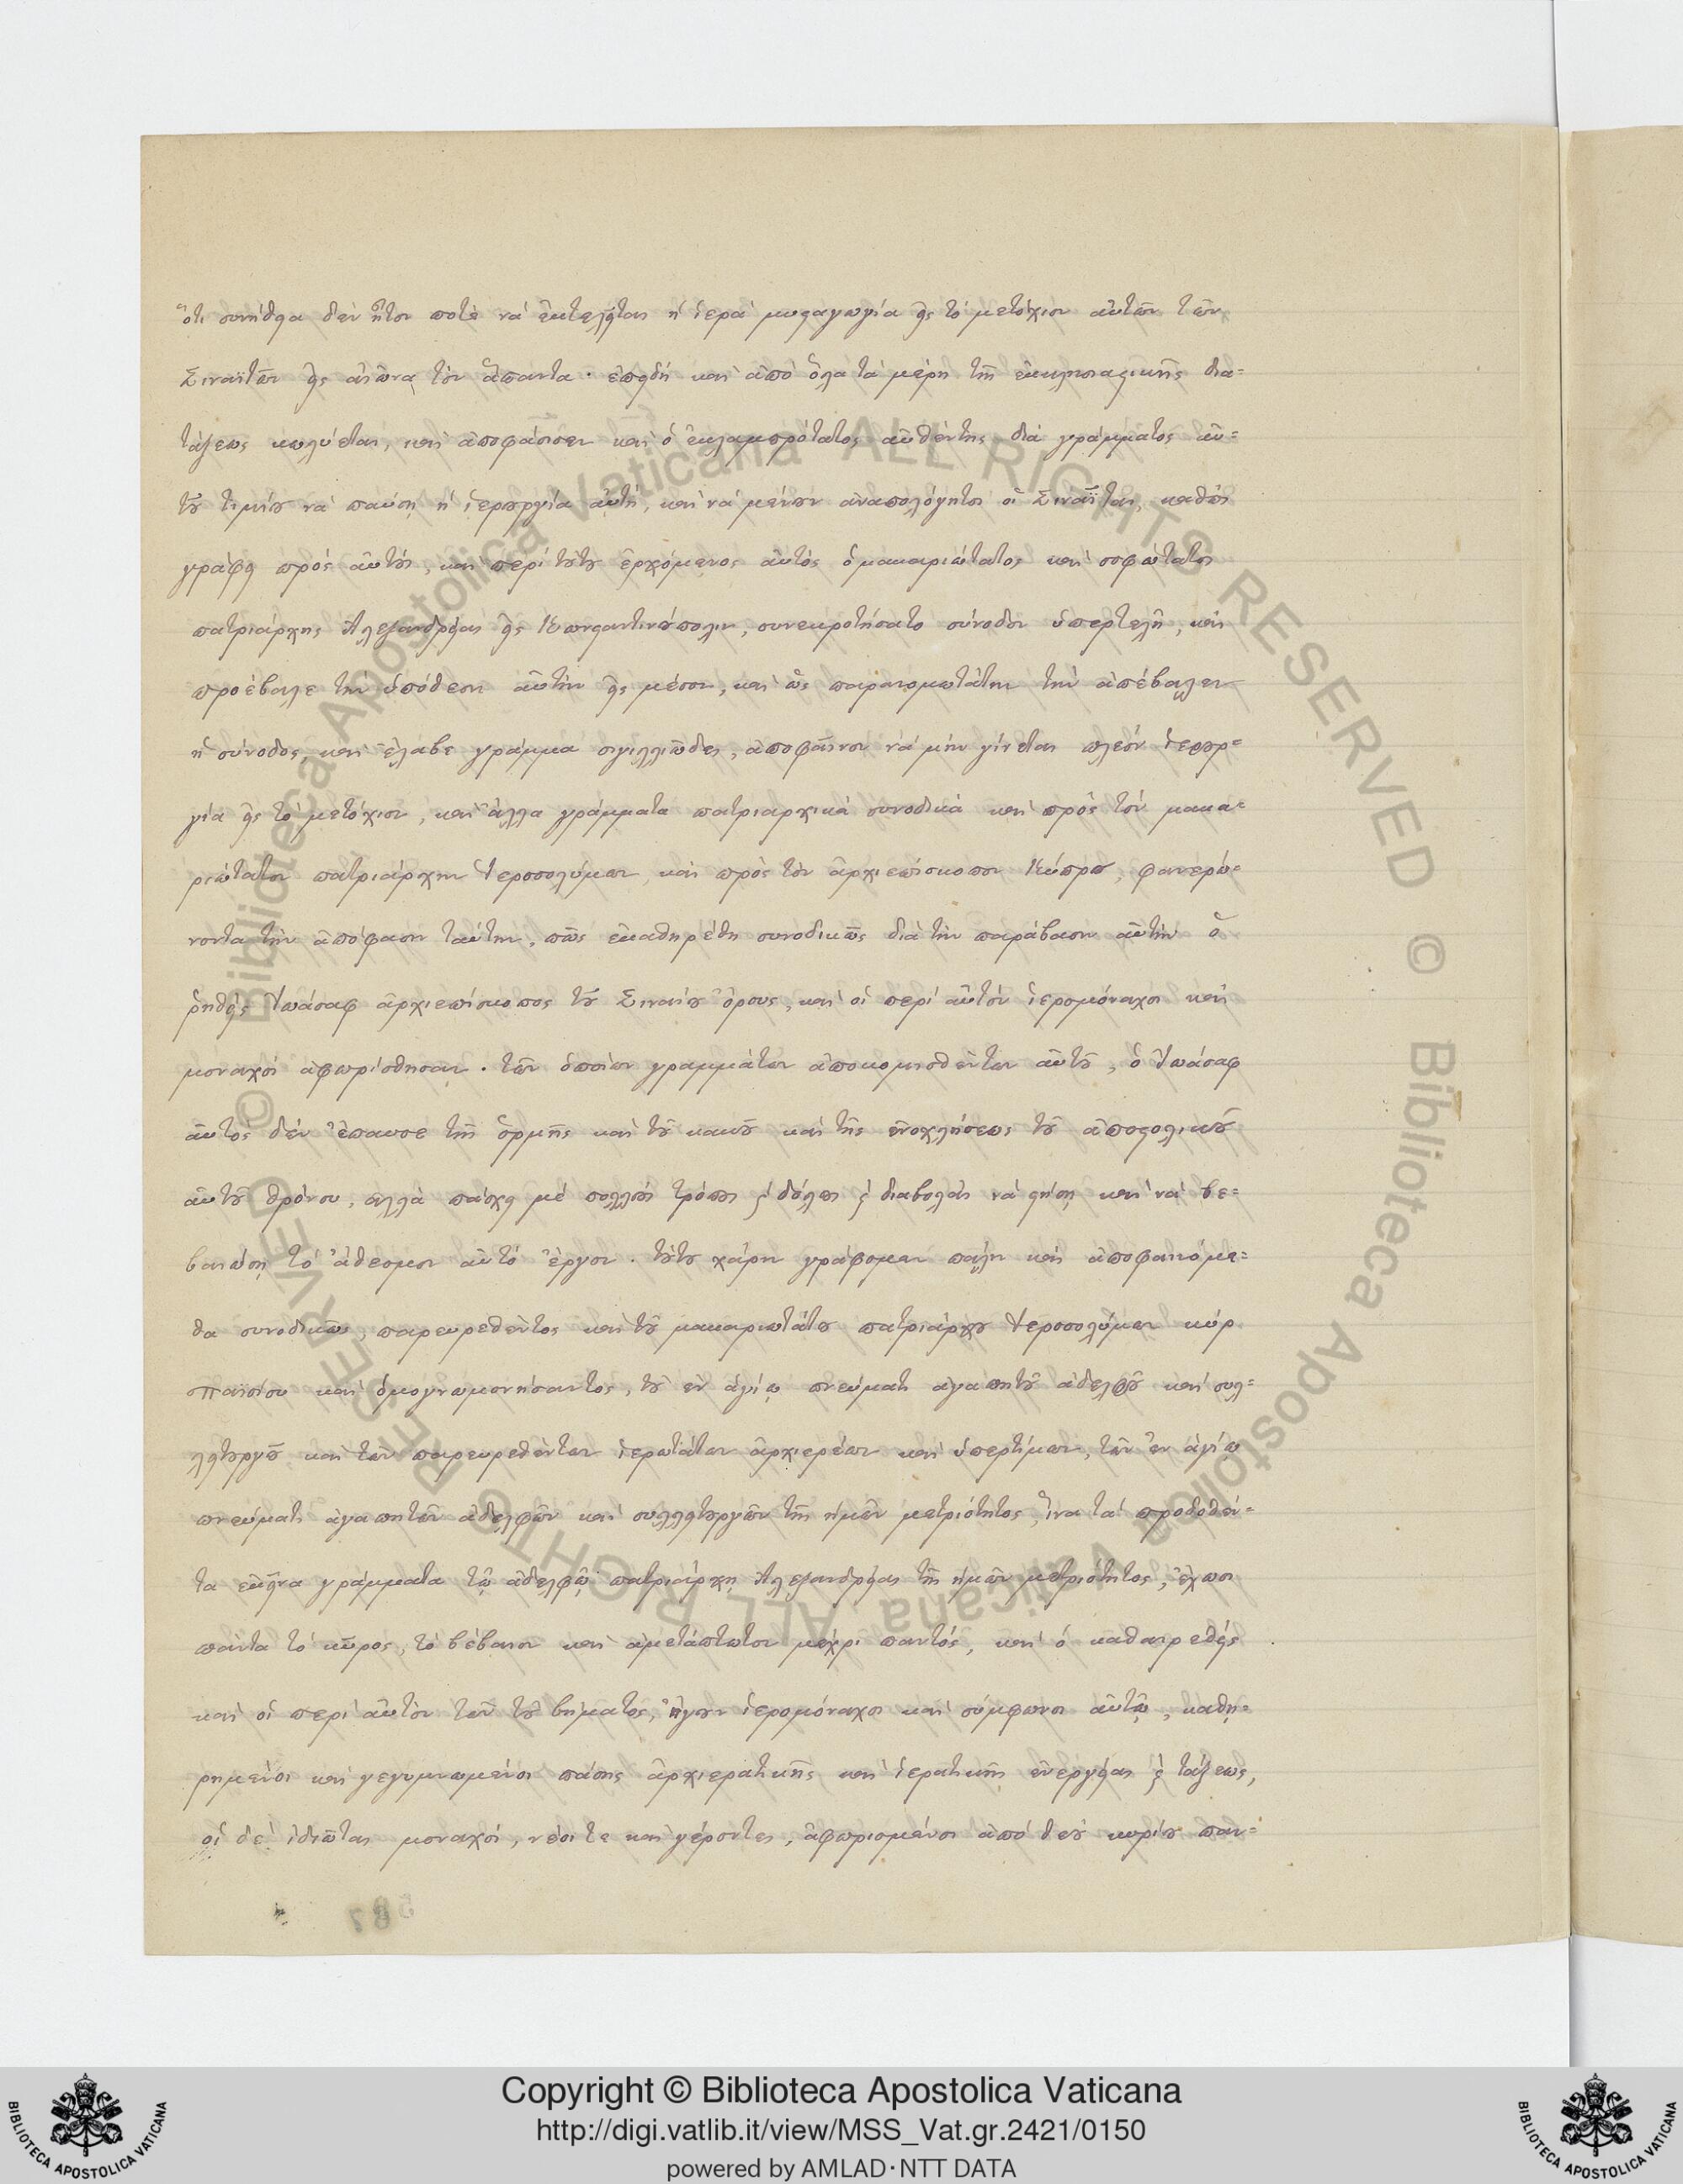 ὅτι συνήθεια δὲν ἦτον ποτὲ νὰ ἐκτελῆται ἡ ἱερὰ μυσταγωγία εἰς τὸ μετόχιον αὐτῶν τῶν
Σιναϊτῶν εἰς αἰῶνα τὸν ἅπαντα· ἐπειδὴ καὶ ἀπὸ ὅλα τὰ μέρη τῆς ἐκκλησιαστικῆς δια=
τάξεως κωλύεται, καὶ ἀποφάσισεν καὶ ὁ ἐκλαμπρότατος αὐθέντης διὰ γράμματος αὐ=
τοῦ τιμίου νὰ παύσῃ ἡ ἱερουργία αὐτή, καὶ νὰ μένουν ἀναπολόγητοι οἱ Σιναΐται, καθὼς
γράφει πρὸς αὐτούς, καὶ περὶ τούτου ἐρχόμενος αὐτὸς ὁ μακαριώτατος καὶ σοφώτατος
πατριάρχης Ἀλεξανδρείας εἰς Κωνσταντινούπολιν, συνεκροτήσατο σύνοδον ὑπερτελῆ, καὶ
προέβαλε τὴν ὑπόθεσιν αὐτὴν εἰς μέσον, καὶ ὡς παρανομωτάτην τὴν ἀπέβαλεν
ἡ σύνοδος, καὶ ἔλαβε γράμμα σιγιλλιῶδες, ἀποφαῖνον νὰ μὴν γίνεται πλέον ἱερουρ=
γία εἰς τὸ μετόχιον, καὶ ἄλλα γράμματα πατριαρχικὰ συνοδικὰ καὶ πρὸς τὸν μακα=
ριώτατον πατριάρχην Ἱεροσολύμων, καὶ πρὸς τὸν ἀρχιεπίσκοπον Κύπρου, φανερώ=
νοντα τὴν ἀπόφασιν ταύτην, πῶς ἐκαθηρέθη συνοδικῶς διὰ τὴν παράβασιν αὐτὴν ὁ
ῥηθεὶς Ἰωάσαφ ἀρχιεπίσκοπος τοῦ Σιναίου ὄρους, καὶ οἱ περὶ αὐτὸν ἱερομόναχοι καὶ
μοναχοὶ ἀφωρίσθησαν. τῶν ὁποίων γραμμάτων ἀποκομισθέντων αὐτοῦ, ὁ Ἰωάσαφ
αὐτὸς δὲν ἔπαυσε τῆς ὁρμῆς καὶ τοῦ κακοῦ καὶ τῆς ἐνοχλήσεως τοῦ ἀποστολικοῦ
αὐτοῦ θρόνου, ἀλλὰ πάσχει μὲ πολλοὺς τρόπους ϗ δόλους ϗ διαβολὰς νὰ στήσῃ καὶ νὰ βε=
βαιώσῃ τὸ ἄθεσμον αὐτὸ ἔργον. τούτου χάριν γράφομεν πάλιν καὶ ἀποφαινόμε=
θα συνοδικῶς, παρευρεθέντος καὶ τοῦ μακαριωτάτου πατριάρχου Ἱεροσολύμων κὺρ
Παϊσίου καὶ ὁμογνωμονήσαντος, τοῦ ἐν ἁγίῳ πνεύματι ἀγαπητοῦ ἀδελφοῦ καὶ συλ=
λειτουργοῦ καὶ τῶν παρευρεθέντων ἱερωτάτων ἀρχιερέων καὶ ὑπερτίμων, τῶν ἐν ἁγίῳ
πνεύματι ἀγαπητῶν ἀδελφῶν καὶ συλλειτουργῶν τῆς ἡμῶν μετριότητος, ἵνα τὰ προδοθέν=
τα ἐκεῖνα γράμματα τῷ ἀδελφῷ πατριάρχῃ Ἀλεξανδρείας τῆς ἡμῶν μετριότητος, ἔχωσι
πάντα τὸ κῦρος, τὸ βέβαιον καὶ ἀμετάπτωτον μέχρι παντός, καὶ ὁ καθαιρεθεὶς
καὶ οἱ περὶ αὐτὸν τῶν τοῦ βήματος, ἤγουν ἱερομόναχοι καὶ σύμφωνοι αὐτῷ, καθῃ=
ρημένοι καὶ γεγυμνωμένοι πάσης ἀρχιερατικῆς καὶ ἱερατικῆς ἐνεργείας ϗ τάξεως,
οἱ δὲ ἰδιῶται μοναχοί, νέοι τε καὶ γέροντες, ἀφωρισμένοι ἀπὸ θεοῦ κυρίου παν=
© Biblioteca Apostolica Vaticana ALL RIGHTS RESERVED © Biblioteca Apostolica Vaticana ALL RIGHTS RESERVED
Copyright © Biblioteca Apostolica Vaticana
http://digi.vatlib.it/view/MSS_Vat.gr.2421/0150
powered by AMLAD·NTT DATA
BIBLIOTECA APOSTOLICA VATICANA
BIBLIOTECA APOSTOLICA VATICANA